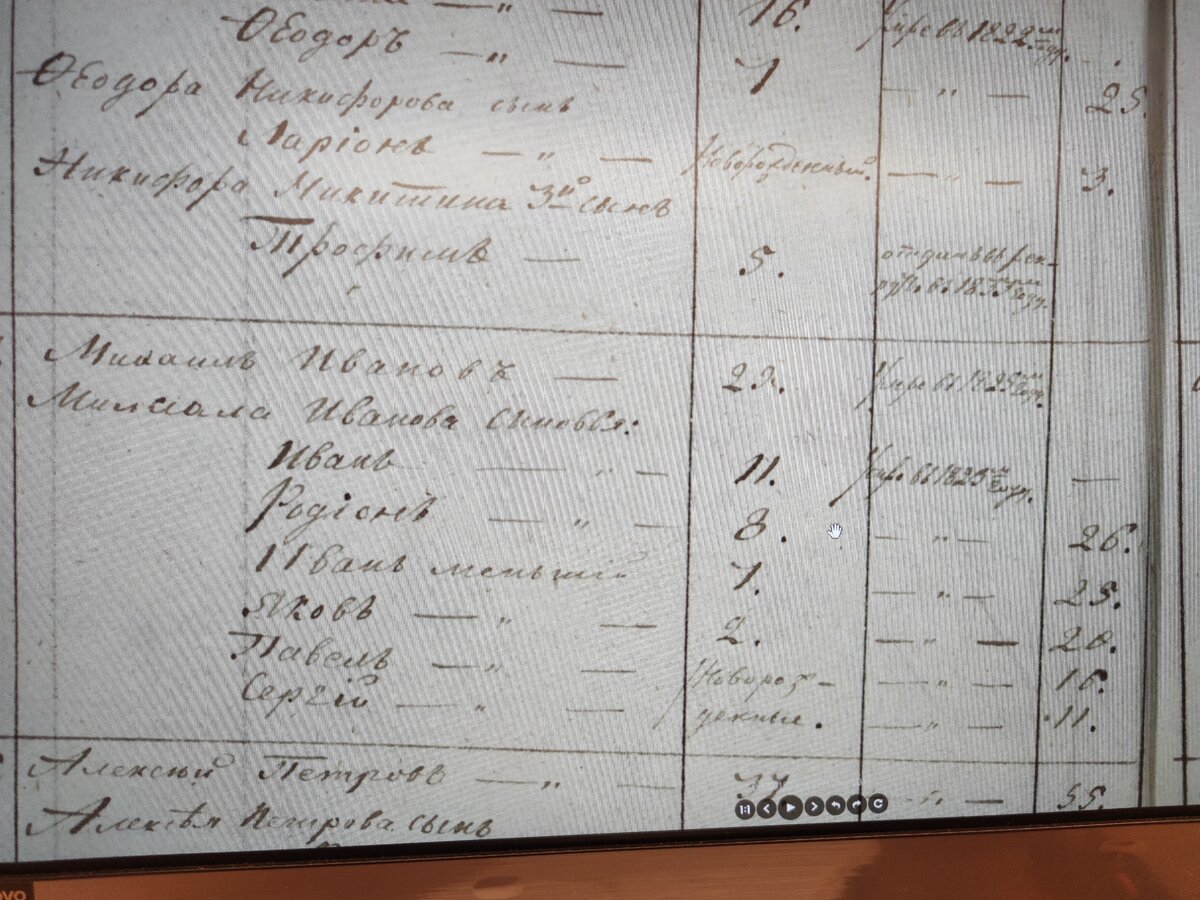 — " — 16. Умре въ 1822 м году.
Ѳеодоръ — " — 7 — " — 25.
Ѳеодора Никифорова сынъ
Ларіонъ — " — Новорожденный. — " — 3.
Никифора Микитина 3й сынъ
Трофимъ — 5. отданъ въ рекруты въ 1833 м году.
Михаилъ Ивановъ — 29. Умре въ 1825 м году.
Михаила Иванова сыновья:
Иванъ — " — 11. Умре въ 1823 м году. —
Родіонъ — " — 8. — " — 26.
Иванъ меньшій 7. — " — 25.
Яковъ — " — 2. — " — 20.
Павелъ — " — Новорож- — " — 16.
Сергій — " — денные. — " — 11.
Алексей Петровъ — " — 37 — " — 55.
Алексѣя Петрова сынъ